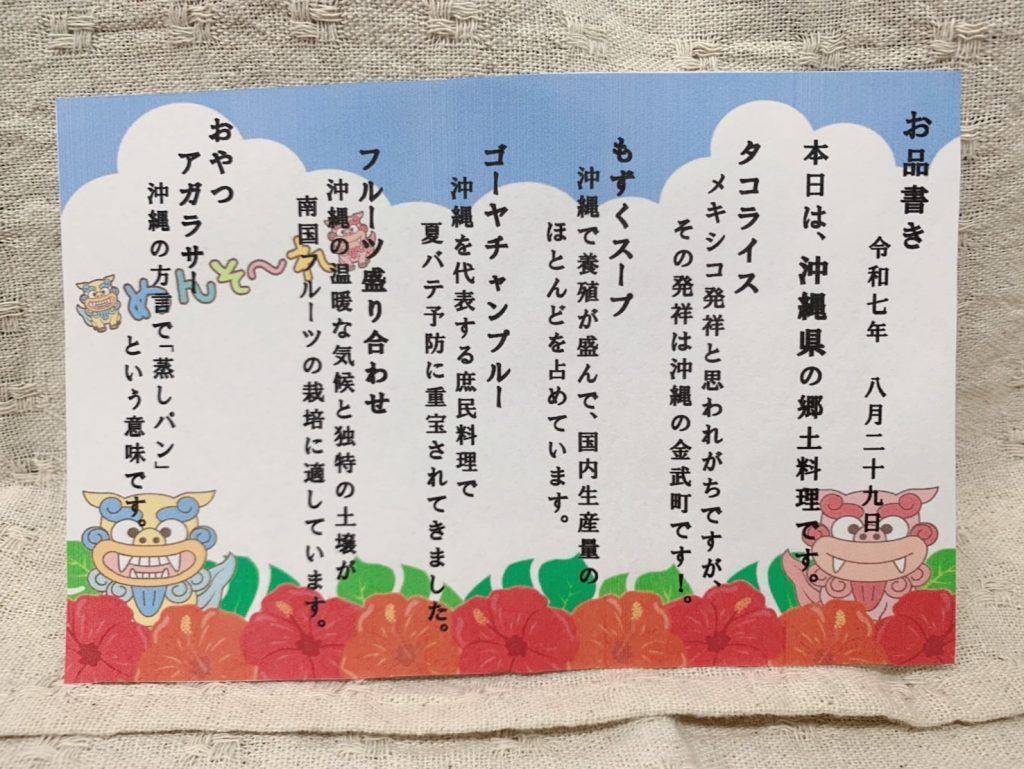 お品書き
令和七年　八月二十九日
本日は、沖縄県の郷土料理です。
タコライス
メキシコ発祥と思われがちですが、
その発祥は沖縄の金武町です！。
もずくスープ
沖縄で養殖が盛んで、国内生産量の
ほとんどを占めています。
ゴーヤチャンプルー
沖縄を代表する庶民料理で
夏バテ予防に重宝されてきました。
フルーツ盛り合わせ
沖縄の温暖な気候と独特の土壌が
南国フルーツの栽培に適しています。
おやつ
アガラサー
沖縄の方言で「蒸しパン」
という意味です。
めんそ〜れ